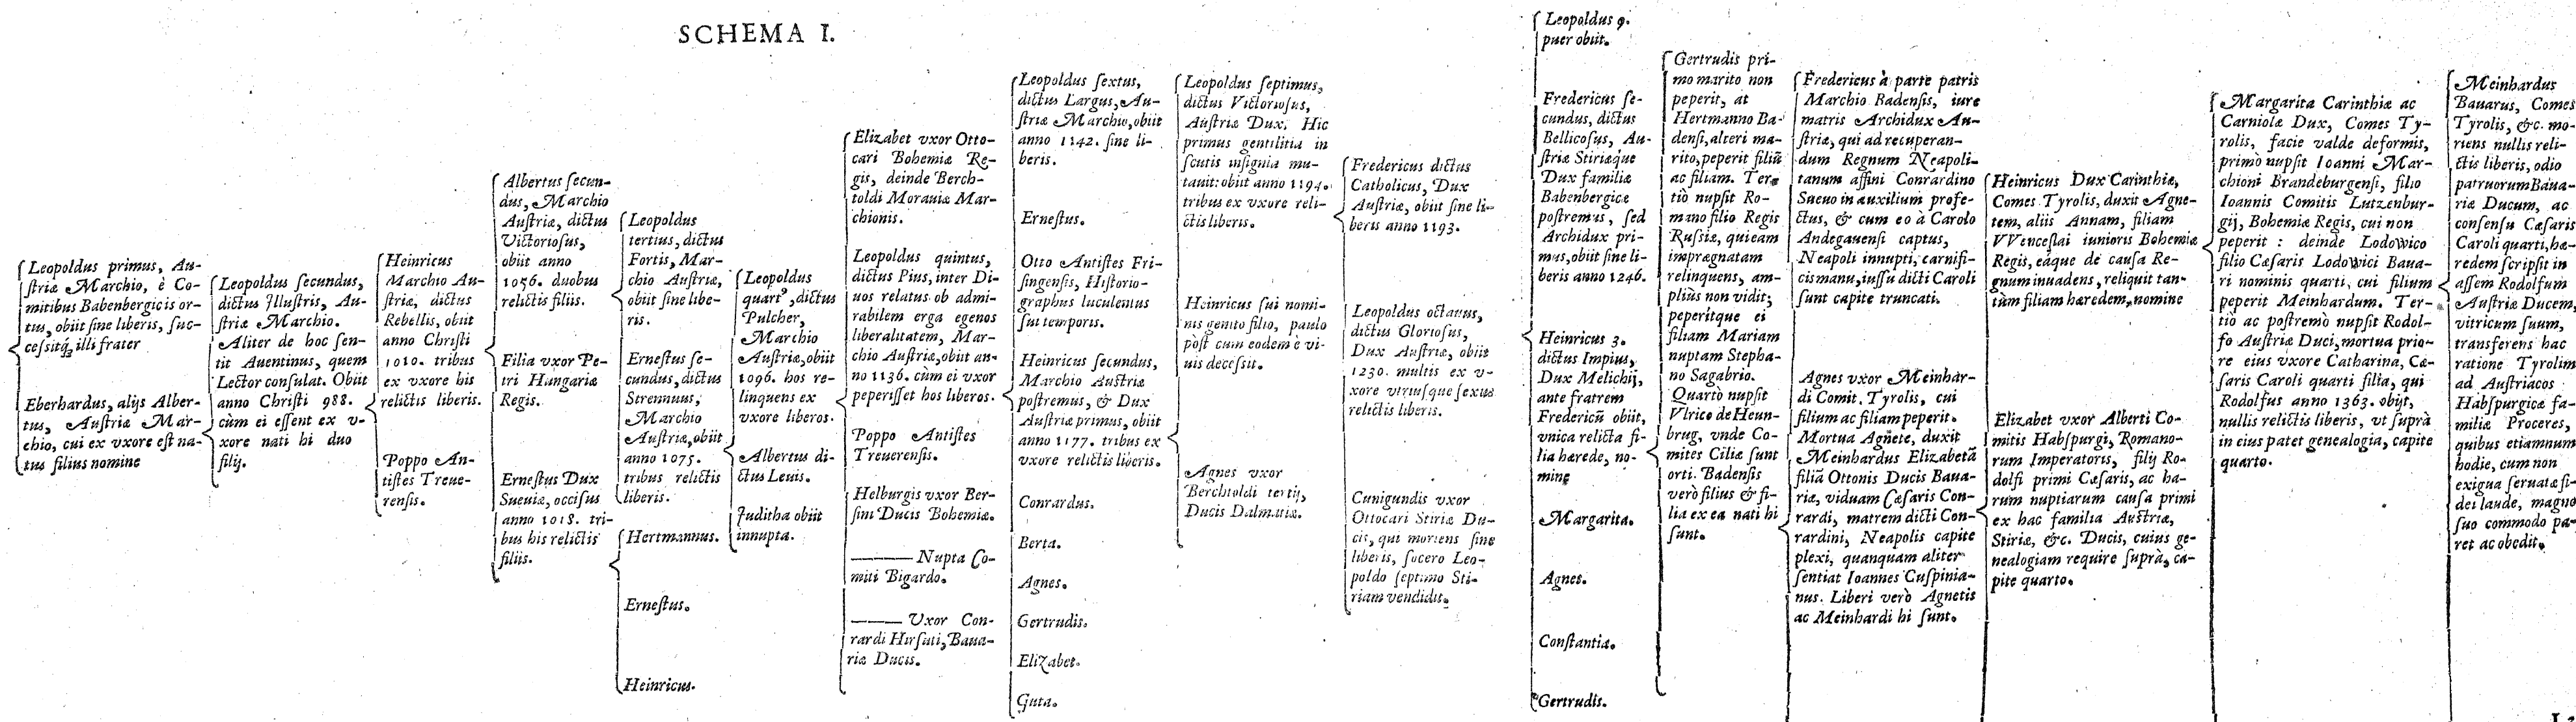 SCHEMA I.
Leopoldus primus, Au-
ſtriæ Marchio, è Co-
mitibus Babenbergicis or-
tus, obiit ſine liberis, ſuc-
ceſsitq; illi frater
Eberhardus, alijs Alber-
tus, Auſtriæ Mar-
chio, cui ex vxore eſt na-
tus filius nomine
Leopoldus ſecundus,
dictus Illuſtris, Au-
ſtriæ Marchio.
Aliter de hoc ſen-
tit Auentinus, quem
Lector conſulat. Obiit
anno Chriſti 988.
cùm ei eſſent ex v-
xore nati hi duo
filij.
Heinricus
Marchio Au-
ſtriæ, dictus
Rebellis, obiit
anno Chriſti
1010. tribus
ex vxore his
relictis liberis.
Poppo An-
tiſtes Treue-
renſis.
Albertus ſecun-
dus, Marchio
Auſtriæ, dictus
Victorioſus,
obiit anno
1056. duobus
relictis filiis.
Filia vxor Pe-
tri Hungariæ
Regis.
Erneſtus Dux
Sueuiæ, occiſus
anno 1018. tri-
bus his relictis
filiis.
Leopoldus
tertius, dictus
Fortis, Mar-
chio Auſtriæ,
obiit ſine libe-
ris.
Erneſtus ſe-
cundus, dictus
Strennuus,
Marchio
Auſtriæ, obiit
anno 1075.
tribus relictis
liberis.
Hertmannus.
Erneſtus.
Heinricus.
Leopoldus
quartꝰ, dictus
Pulcher,
Marchio
Auſtriæ, obiit
1096. hos re-
linquens ex
vxore liberos.
Albertus di-
ctus Leuis.
Juditha obiit
innupta.
Elizabet vxor Otto-
cari Bohemiæ Re-
gis, deinde Berch-
toldi Morauiæ Mar-
chionis.
Leopoldus quintus,
dictus Pius, inter Di-
uos relatus ob admi-
rabilem erga egenos
liberalitatem, Mar-
chio Auſtriæ, obiit an-
no 1136. cùm ei vxor
peperiſſet hos liberos.
Poppo Antiſtes
Treuerenſis.
Helburgis vxor Ber-
ſini Ducis Bohemiæ.
——— Nupta Co-
miti Bigardo.
——— Vxor Con-
rardi Hirſuti, Baua-
riæ Ducis.
Leopoldus ſextus,
dictus Largus, Au-
ſtriæ Marchio, obiit
anno 1142. ſine li-
beris.
Erneſtus.
Otto Antiſtes Fri-
ſingenſis, Hiſtorio-
graphus luculentus
ſui temporis.
Heinricus ſecundus,
Marchio Auſtriæ
poſtremus, & Dux
Auſtriæ primus, obiit
anno 1177. tribus ex
vxore relictis liberis.
Conrardus.
Berta.
Agnes.
Gertrudis.
Elizabet.
Guta.
Leopoldus ſeptimus,
dictus Victorioſus,
Auſtriæ Dux. Hic
primus gentilitia in
ſcutis inſignia mu-
tauit: obiit anno 1194.
tribus ex vxore reli-
ctis liberis.
Heinricus ſui nomi-
nis genito filio, paulo
pòſt cum eodem è vi-
uis deceſsit.
Agnes vxor
Berchtoldi tertij,
Ducis Dalmatiæ.
Fredericus dictus
Catholicus, Dux
Auſtriæ, obiit ſine li-
beris anno 1193.
Leopoldus octauus,
dictus Glorioſus,
Dux Auſtriæ, obiit
1230. multis ex v-
xore vtriuſque ſexus
relictis liberis.
Cunigundis vxor
Ottocari Stiriæ Du-
cis, qui moriens ſine
liberis, ſocero Leo-
poldo ſeptimo Sti-
riam vendidit.
Leopoldus 9.
puer obiit.
Fredericus ſe-
cundus, dictus
Bellicoſus, Au-
ſtriæ Stiriæque
Dux familiæ
Babenbergicæ
poſtremus, ſed
Archidux pri-
mus, obiit ſine li-
beris anno 1246.
Heinricus 3.
dictus Impius,
Dux Melichij,
ante fratrem
Fredericũ obiit,
vnica relicta fi-
lia hærede, no-
mine
Margarita.
Agnes.
Conſtantia.
Gertrudis.
Gertrudis pri-
mo marito non
peperit, at
Hertmanno Ba-
denſi, alteri ma-
rito, peperit filiũ
ac filiam. Ter-
tiò nupſit Ro-
mano filio Regis
Ruſſiæ, qui eam
imprægnatam
relinquens, am-
pliùs non vidit;
peperitque ei
filiam Mariam
nuptam Stepha-
no Sagabrio.
Quartò nupſit
Vlrico de Heun-
brug, vnde Co-
mites Ciliæ ſunt
orti. Badenſis
verò filius & fi-
lia ex ea nati hi
ſunt.
Fredericus à parte patris
Marchio Badenſis, iure
matris Archidux Au-
ſtriæ, qui ad recuperan-
dum Regnum Neapoli-
tanum affini Conrardino
Sueuo in auxilium profe-
ctus, & cum eo à Carolo
Andegauenſi captus,
Neapoli innupti, carnifi-
cis manu, iuſſu dicti Caroli
ſunt capite truncati.
Agnes vxor Meinhar-
di Comit. Tyrolis, cui
filium ac filiam peperit.
Mortua Agnete, duxit
Meinhardus Elizabetã
filiã Ottonis Ducis Baua-
riæ, viduam Cæſaris Con-
rardi, matrem dicti Con-
rardini, Neapolis capite
plexi, quanquam aliter
ſentiat Ioannes Cuſpinia-
nus. Liberi verò Agnetis
ac Meinhardi hi ſunt.
Heinricus Dux Carinthiæ,
Comes Tyrolis, duxit Agne-
tem, aliis Annam, filiam
VVenceſlai iunioris Bohemiæ
Regis, eáque de cauſa Re-
gnum inuadens, reliquit tan-
tùm filiam hæredem, nomine
Elizabet vxor Alberti Co-
mitis Habſpurgi, Romano-
rum Imperatoris, filij Ro-
dolfi primi Cæſaris, ac ha-
rum nuptiarum cauſa primi
ex hac familia Auſtriæ,
Stiriæ, &c. Ducis, cuius ge-
nealogiam require ſuprà, ca-
pite quarto.
Margarita Carinthiæ ac
Carniolæ Dux, Comes Ty-
rolis, facie valde deformis,
primò nupſit Ioanni Mar-
chioni Brandeburgenſi, filio
Ioannis Comitis Lutzenbur-
gij, Bohemiæ Regis, cui non
peperit : deinde Lodowico
filio Cæſaris Lodowici Baua-
ri nominis quarti, cui filium
peperit Meinhardum. Ter-
tiò ac poſtremò nupſit Rodol-
fo Auſtriæ Duci, mortua prio-
re eius vxore Catharina, Cæ-
ſaris Caroli quarti filia, qui
Rodolfus anno 1363. obijt,
nullis relictis liberis, vt ſuprà
in eius patet genealogia, capite
quarto.
Meinhardus
Bauarus, Comes
Tyrolis, &c. mo-
riens nullis reli-
ctis liberis, odio
patruorum Baua-
riæ Ducum, ac
conſenſu Cæſaris
Caroli quarti, hæ-
redem ſcripſit in
aſſem Rodolfum
Auſtriæ Ducem,
vitricum ſuum,
transferens hac
ratione Tyrolim
ad Auſtriacos
Habſpurgicæ fa-
miliæ Proceres,
quibus etiamnum
hodie, cum non
exigua ſeruatæ fi-
dei laude, magno
ſuo commodo pa-
ret ac obedit.